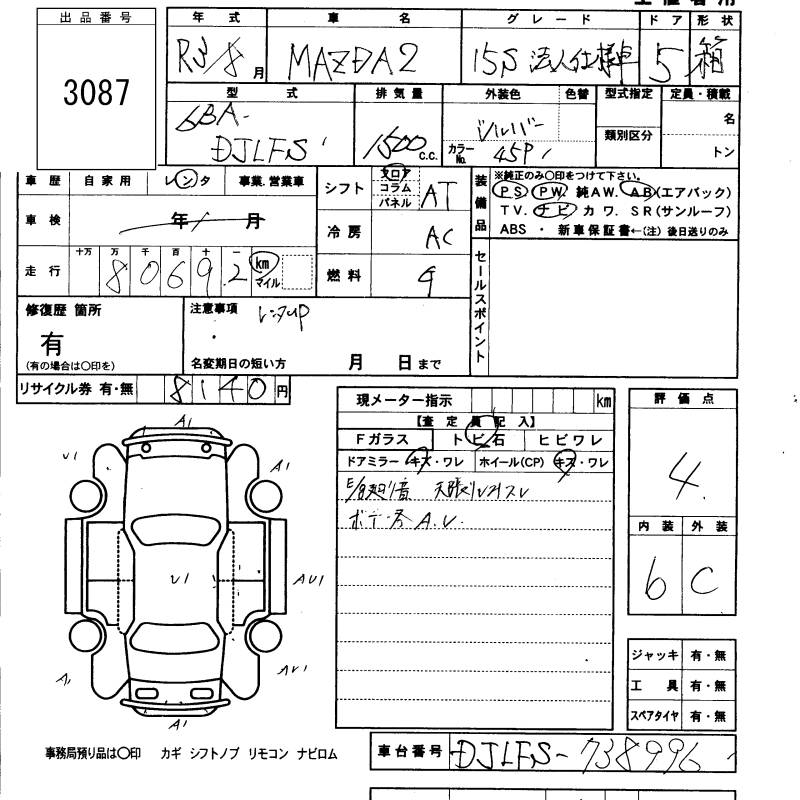 出品番号
3087
年式 車名 グレード ドア 形状
R3/8月 MAZDA2 15S 法人仕様車 5 箱
型式 排気量 外装色 色替 型式指定 定員・積載
6BA-
DJLFS 1500 C.C. シルバー カラーNo. 45P 類別区分 名
トン
車歴 自家用 レンタ 事業.営業車
シフト フロア コラム パネル AT
装備品
※純正のみ○印をつけて下さい。
PS. PW. 純AW. AB(エアバック)
TV. ナビ カワ. SR(サンルーフ)
ABS ・ 新車保証書←(注) 後日送りのみ
車検 年 / 月
冷房 AC
走行 十万 万 千 百 十 一
80692 km マイル
燃料 G
セールスポイント
修復歴 箇所
有
(有の場合は○印を)
注意事項 レンタUP
名変期日の短い方 月 日まで
リサイクル券 有・無 8140円
現メーター指示 km
【査定員記入】
Fガラス トビ石 ヒビワレ
ドアミラー キズ・ワレ ホイール(CP) キズ・ワレ
天張り
A.U.
評価点
4.
内装 外装
b C
A1
U1 A1
U1 AU1
A1 AU1
A1
ジャッキ 有・無
工具 有・無
スペアタイヤ 有・無
事務局預り品は○印 カギ シフトノブ リモコン ナビロム
車台番号 DJLFS-738996